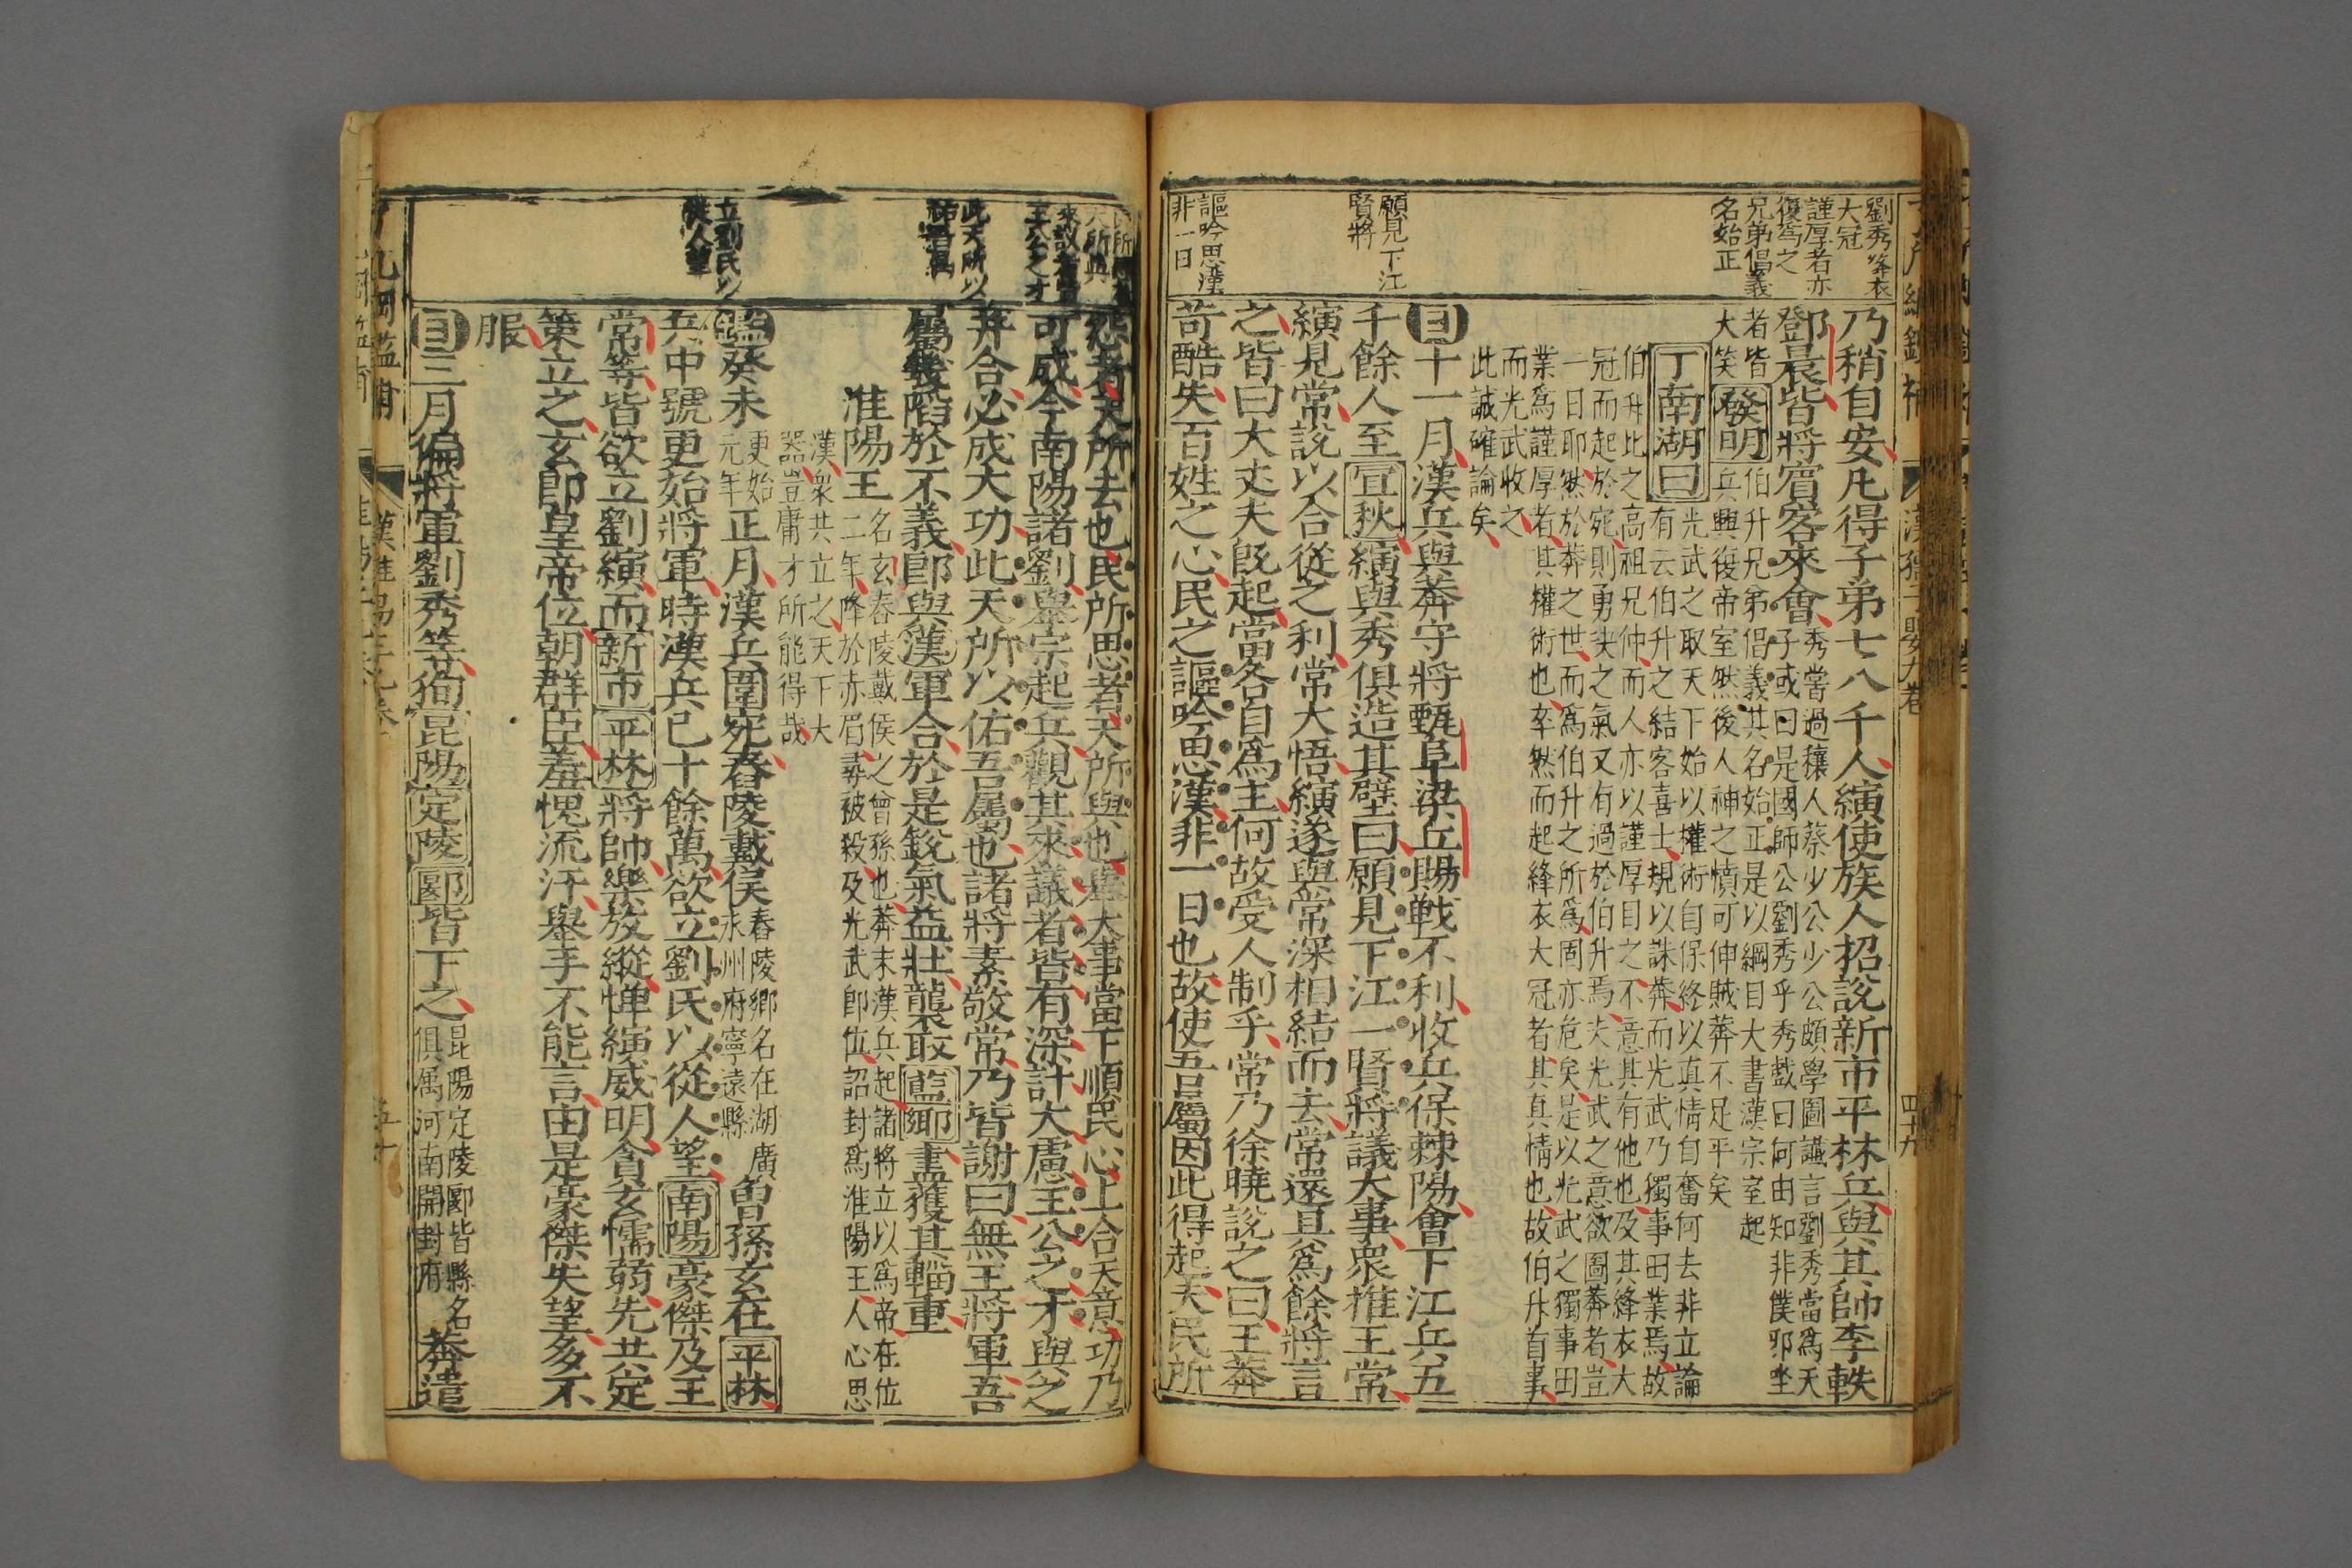 劉秀絳衣
大冠
謹厚者亦
復爲之
兄弟倡義
名始正
願見下江
賢將
謳吟思漢
非一日
乃稍自安凡得子弟七八千人縯使族人招說新市平林兵與其帥李軼
鄧晨皆將賓客來會
秀嘗過穰人蔡少公少公頗學圖讖言劉秀當爲天
子或曰是國師公劉秀乎秀戲曰何由知非僕邪坐
者皆
大笑
發明
伯升兄弟倡義其名始正是以綱目大書漢宗室起
兵興復帝室然後人神之憤可伸賊莽不足平矣
丁南湖曰
光武之取天下始以權術自保終以真情自奮何去非立論
有云伯升之結客喜士規以誅莽而光武乃獨事田業焉故
伯升比之高祖兄仲而人亦以謹厚目之不意其有他也及其絳衣大
冠而起於宛則勇決之氣又有過於伯升焉夫光武之意欲圖莽者豈
一日耶然於莽之世而爲伯升之所爲固亦危矣是以光武之獨事田
業爲謹厚者其權術也卒然而起絳衣大冠者其真情也故伯升首事
而光武收之
此誠確論矣
目十一月漢兵與莽守將甄阜梁丘賜戰不利收兵保棘陽會下江兵五
千餘人至宜秋縯與秀俱造其壁曰願見下江一賢將議大事衆推王常
縯見常說以合從之利常大悟縯遂與常深相結而去常還具爲餘將言
之皆曰大丈夫旣起當各自爲主何故受人制乎常乃徐曉說之曰王莽
苛酷失百姓之心民之謳吟思漢非一日也故使吾屬因此得起夫民所
怨者天所去也民所思者天所與也舉大事當下順民心上合天意功乃
可成今南陽諸劉舉宗起兵觀其來議者皆有深計大慮王公之才與之
并合必成大功此天所以佑吾屬也諸將素敬常乃皆謝曰無王將軍吾
屬幾陷於不義卽與漢軍合於是銳氣益壯襲取藍鄉盡獲其輜重
淮陽王
名玄舂陵戴侯之曾孫也莽末漢兵起諸將立以爲帝在位
二年降於赤眉尋被殺及光武卽位詔封爲淮陽王人心思
漢衆共立之天下大
器豈庸才所能得哉
鑑癸未
更始
元年
正月漢兵圍宛舂陵戴侯
舂陵鄉名在湖廣
永州府寧遠縣
曾孫玄在平林
兵中號更始將軍時漢兵已十餘萬欲立劉氏以從人望南陽豪傑及王
常等皆欲立劉縯而新市平林將帥樂放縱憚縯威明貪玄懦弱先共定
策立之玄卽皇帝位朝群臣羞愧流汗舉手不能言由是豪傑失望多不
服
目三月偏將軍劉秀等徇昆陽定陵郾皆下之
昆陽定陵郾皆縣名
俱屬河南開封府
莽遣
王公之才
此天所以
立劉氏以
從人望